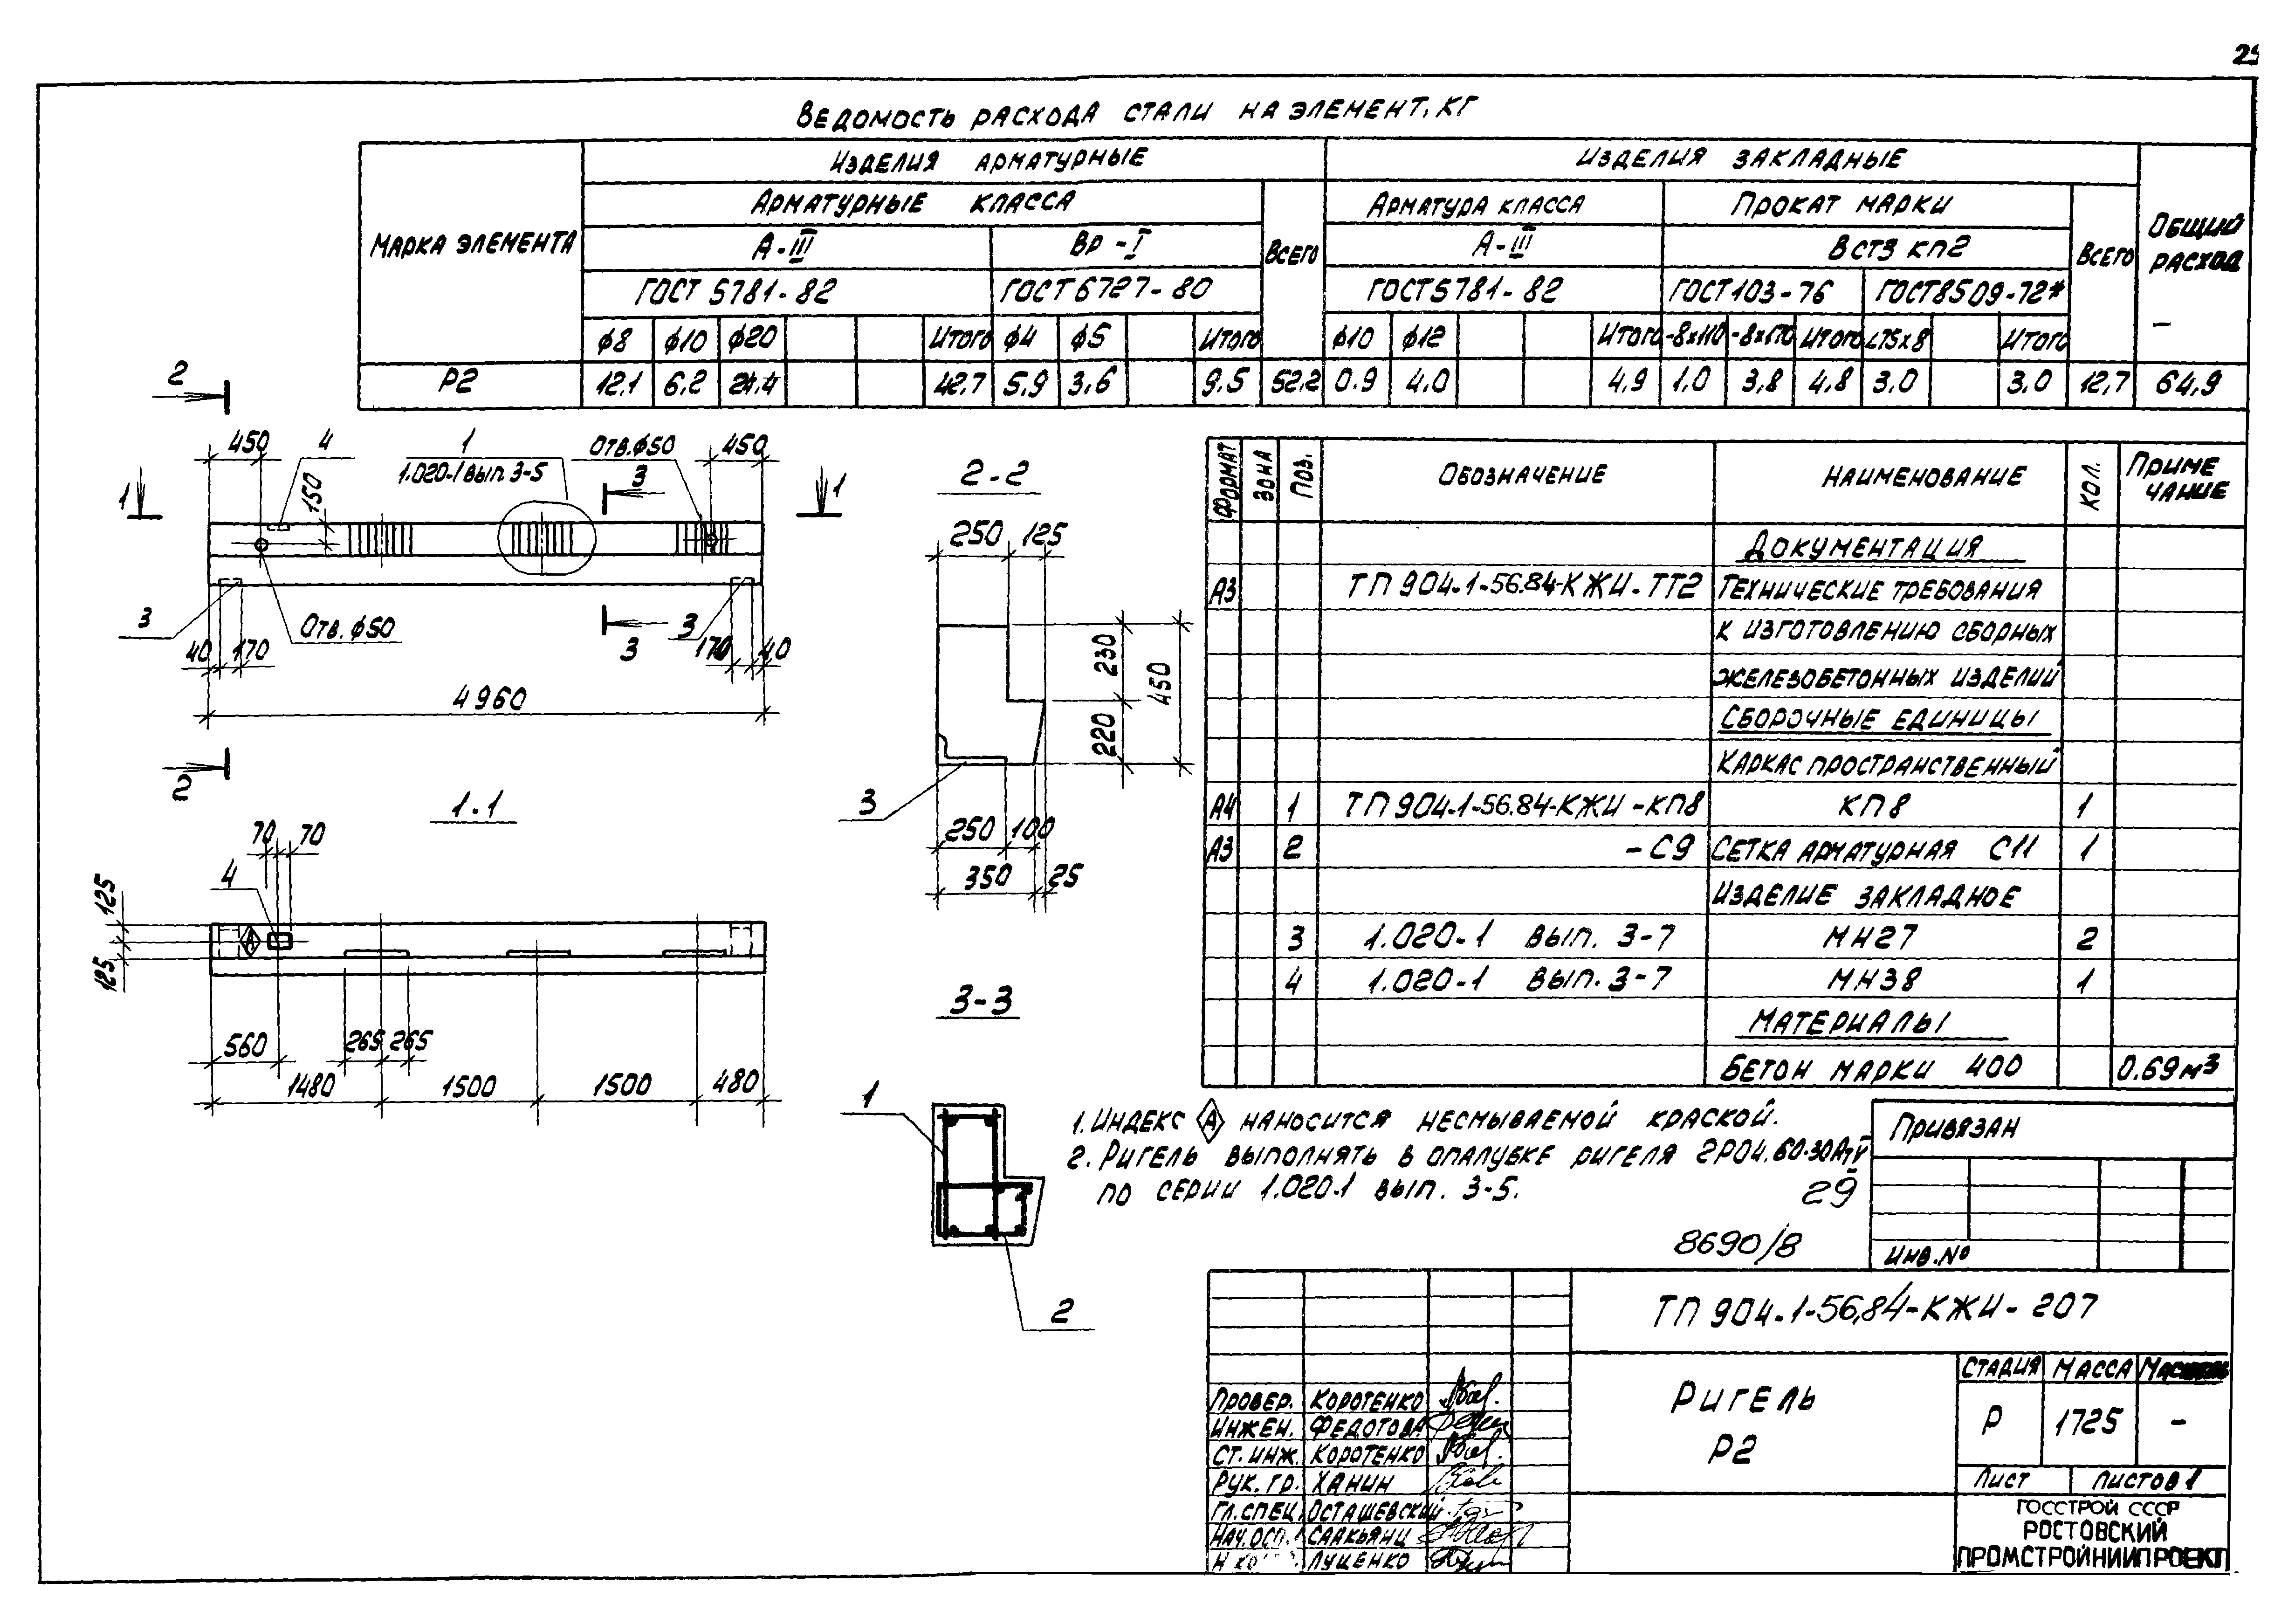 25
Ведомость расхода стали на элемент, кг
Марка элемента
Изделия арматурные
Изделия закладные
Общий расход
Арматурные класса
Всего
Арматура класса
Прокат марки
Всего
А-III
Вр-I
А-III
ВСт3 кп2
ГОСТ 5781-82
ГОСТ 6727-80
ГОСТ 5781-82
ГОСТ 103-76
ГОСТ 8509-72*
–
ф8 ф10 ф20 Итого ф4 ф5 Итого ф10 ф12 Итого -8х110 -8х170 Итого L75х8 Итого
Р2 12,1 6,2 24,4 42,7 5,9 3,6 9,5 52,2 0.9 4,0 4,9 1,0 3,8 4,8 3,0 3,0 12,7 64,9
2
450 4 1 Отв. ф50 450
1.020-1 вып. 3-5
3
1 150 1
3 3
Отв. ф50
3
40 170 170 40
4960
2
2-2
250 125
230
450
220
3
250 100
350 25
1-1
70 70
4
125
125
А
560 265 265
1480 1500 1500 480
3-3
1
2
Формат Зона Поз. Обозначение Наименование Кол. Примечание
Документация
А3 ТП 904-1-56.84-КЖИ-ТТ2 Технические требования
к изготовлению сборных
железобетонных изделий
Сборочные единицы
Каркас пространственный
А4 1 ТП 904-1-56.84-КЖИ-КП8 КП8 1
А3 2 -С9 Сетка арматурная С11 1
Изделие закладное
3 1.020-1 вып. 3-7 МН27 2
4 1.020-1 вып. 3-7 МН38 1
Материалы
Бетон марки 400 0.69 м³
1. Индекс А наносится несмываемой краской.
2. Ригель выполнять в опалубке ригеля 2Р04.60-30АтV
по серии 1.020-1 вып. 3-5.
29
8690/8
Привязан
Инв. №
ТП 904-1-56,84-КЖИ-207
Провер. Коротенко
Инжен. Федотова
Ст. инж. Коротенко
Рук. гр. Ханин
Гл. спец. Осташевский
Нач. осп. Саакьянц
Луценко
Ригель
Р2
Стадия Масса Масштаб
Р 1725 –
Лист Листов 1
ГОССТРОЙ СССР
РОСТОВСКИЙ
ПРОМСТРОЙНИИПРОЕКТ